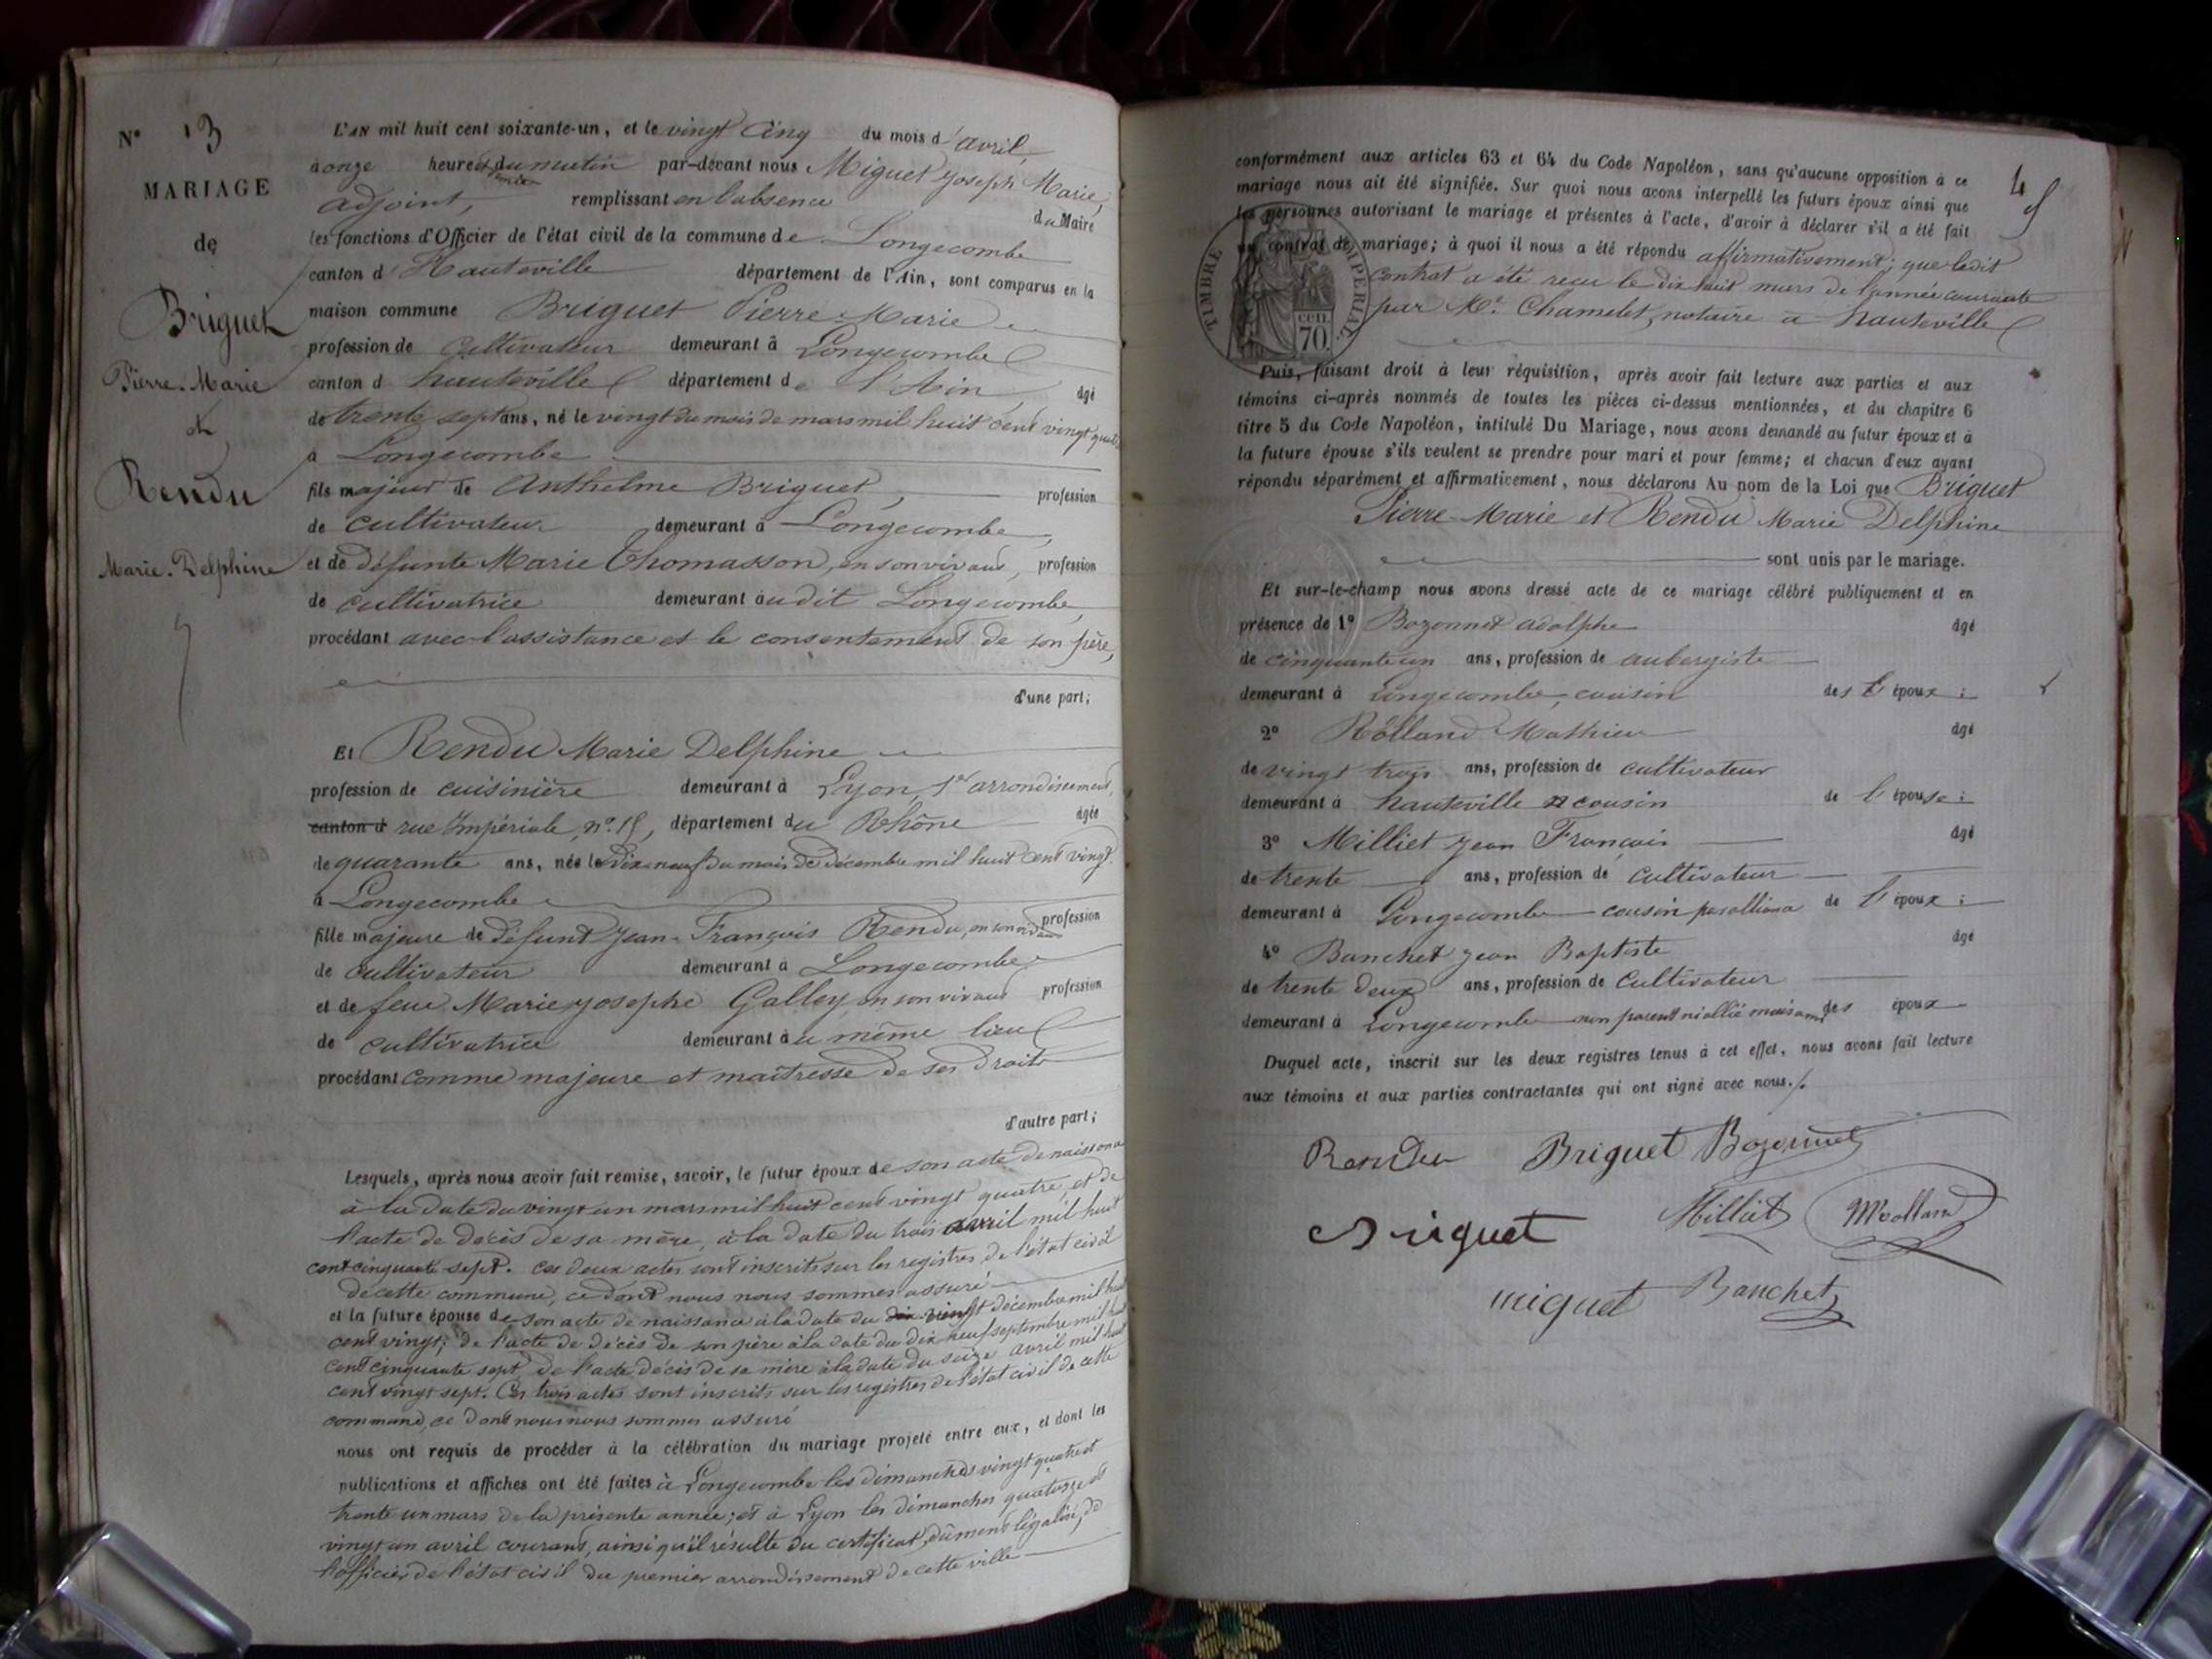 N° 13
MARIAGE
de
Briguet
Pierre-Marie
et
Rendu
Marie-Delphine
L'AN mil huit cent soixante-un, et le vingt cinq du mois d'avril,
à onze heures du matin par-devant nous Miguet Joseph Marie,
adjoint, remplissant en l'absence du Maire
les fonctions d'Officier de l'état civil de la commune de Longecombe
canton d'Hauteville département de l'Ain, sont comparus en la
maison commune Briguet Pierre-Marie
profession de Cultivateur demeurant à Longecombe
canton d hauteville département de l'Ain, âgé
de trente sept ans, né le vingt du mois de mars mil huit cent vingt quatre
à Longecombe
fils majeur de Anthelme Briguet, profession
de cultivateur demeurant à Longecombe,
et de défunte Marie Thomasson, en son vivant, profession
de cultivatrice demeurant audit Longecombe,
procédant avec l'assistance et le consentement de son père,
d'une part;
Et Rendu Marie Delphine
profession de cuisinière demeurant à Lyon, 1er arrondissement,
canton d rue Impériale, n° 15, département du Rhône âgée
de quarante ans, née le dix-neuf du mois de décembre mil huit cent vingt
à Longecombe
fille majeure de défunt Jean-François Rendu, en son vivant profession
de cultivateur demeurant à Longecombe
et de feue Marie Josephe Galley, en son vivant profession
de cultivatrice demeurant au même lieu
procédant comme majeure et maîtresse de ses droits
d'autre part;
Lesquels, après nous avoir fait remise, savoir, le futur époux de son acte de naissance
à la date du vingt un mars mil huit cent vingt quatre, et de
l'acte de décès de sa mère, à la date du trois avril mil huit
cent cinquante sept. Ces deux actes sont inscrits sur les registres de l'état civil
de cette commune, ce dont nous nous sommes assuré
et la future épouse de son acte de naissance à la date du vingt décembre mil huit
cent vingt; de l'acte de décès de son père à la date du dix neuf septembre mil huit
cent cinquante sept, de l'acte décès de sa mère à la date du seize avril mil huit
cent vingt sept. Ces trois actes sont inscrits sur les registres de l'état civil de cette
commune, ce dont nous nous sommes assuré
nous ont requis de procéder à la célébration du mariage projeté entre eux, et dont les
publications et affiches ont été faites à Longecombe les dimanches vingt quatre et
trente un mars de la présente année; et à Lyon les dimanches quatorze et
vingt un avril courant, ainsi qu'il résulte du certificat, dûment légalisé, de
l'officier de l'état civil du premier arrondissement de cette ville
45
conformément aux articles 63 et 64 du Code Napoléon, sans qu'aucune opposition à ce
mariage nous ait été signifiée. Sur quoi nous avons interpellé les futurs époux ainsi que
les personnes autorisant le mariage et présentes à l'acte, d'avoir à déclarer s'il a été fait
un contrat de mariage; à quoi il nous a été répondu affirmativement; que ledit
contrat a été reçu le dix huit mars de l'année courante
par Me. Chamelet, notaire à hauteville
TIMBRE IMPÉRIAL
70 cen.
Puis, faisant droit à leur réquisition, après avoir fait lecture aux parties et aux
témoins ci-après nommés de toutes les pièces ci-dessus mentionnées, et du chapitre 6
titre 5 du Code Napoléon, intitulé Du Mariage, nous avons demandé au futur époux et à
la future épouse s'ils veulent se prendre pour mari et pour femme; et chacun d'eux ayant
répondu séparément et affirmativement, nous déclarons Au nom de la Loi que Briguet
Pierre-Marie et Rendu Marie Delphine
sont unis par le mariage.
Et sur-le-champ nous avons dressé acte de ce mariage célébré publiquement et en
présence de 1° Bozonnet adolphe âgé
de cinquante un ans, profession de aubergiste
demeurant à Longecombe, cousin des l'époux;
2° Rolland Mathieu âgé
de vingt trois ans, profession de cultivateur
demeurant à hauteville cousin de l'épouse;
3° Milliet Jean François âgé
de trente ans, profession de cultivateur
demeurant à Longecombe cousin par alliance de l'époux;
4° Banchet Jean Baptiste âgé
de trente deux ans, profession de cultivateur
demeurant à Longecombe non parent ni allié mais ami des époux
Duquel acte, inscrit sur les deux registres tenus à cet effet, nous avons fait lecture
aux témoins et aux parties contractantes qui ont signé avec nous./.
Rendu Briguet Bozonnet
Briguet Milliet MRolland
miguet Banchet